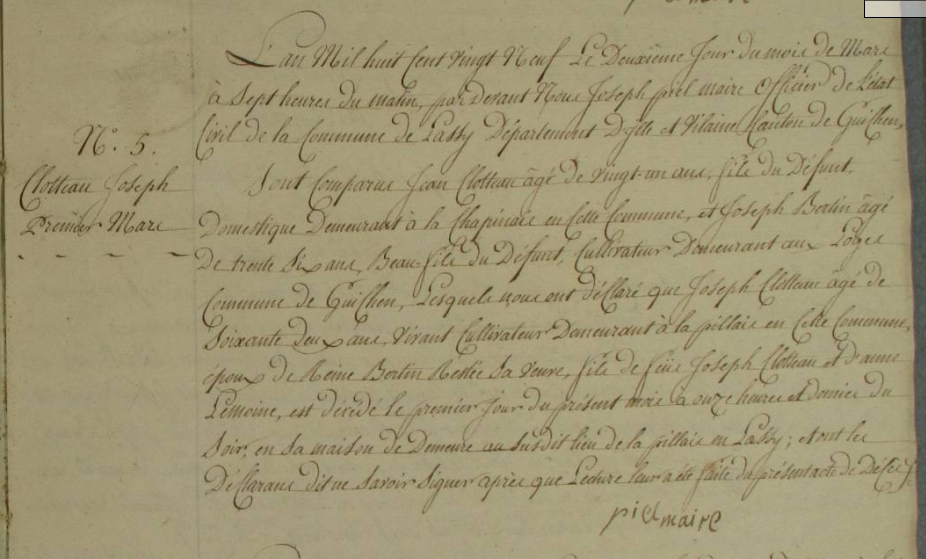 L'an Mil huit Cent Vingt Neuf Le Deuxième Jour du mois de Mars
à Sept heures du matin, par devant Nous Joseph piel maire Officier de L'état
Civil de la Commune de Lassy Département D'ylle et Vilaine Canton de Guichen,
N.° 5.
Clotteau Joseph
Premier Mars
Sont Comparus Jean Clotteau âgé de Vingt-un ans, fils du Défunt,
Domestique Demeurant à la Chapinais en Cette Commune, et Joseph Bertin âgé
De trente Six ans, Beau-fils du Défunt, Cultivateur Demeurant aux Loges
Commune de Guichen, Lesquels nous ont déclaré que Joseph Clotteau âgé de
Soixante deux ans, Vivant Cultivateur Demeurant à la pillais en Cette Commune,
époux de Reine Bertin Restée Sa Veuve, fils de feüs Joseph Clotteau et d'anne
Lemoine, est décédé le premier Jour du présent mois à onze heures et demies du
Soir, en Sa maison de Demeure au Susdit lieu de la pillais en Lassy; et ont les
Déclarans dit ne Savoir Signer après que Lecture leur a été faite du présent acte de Décès
piel maire